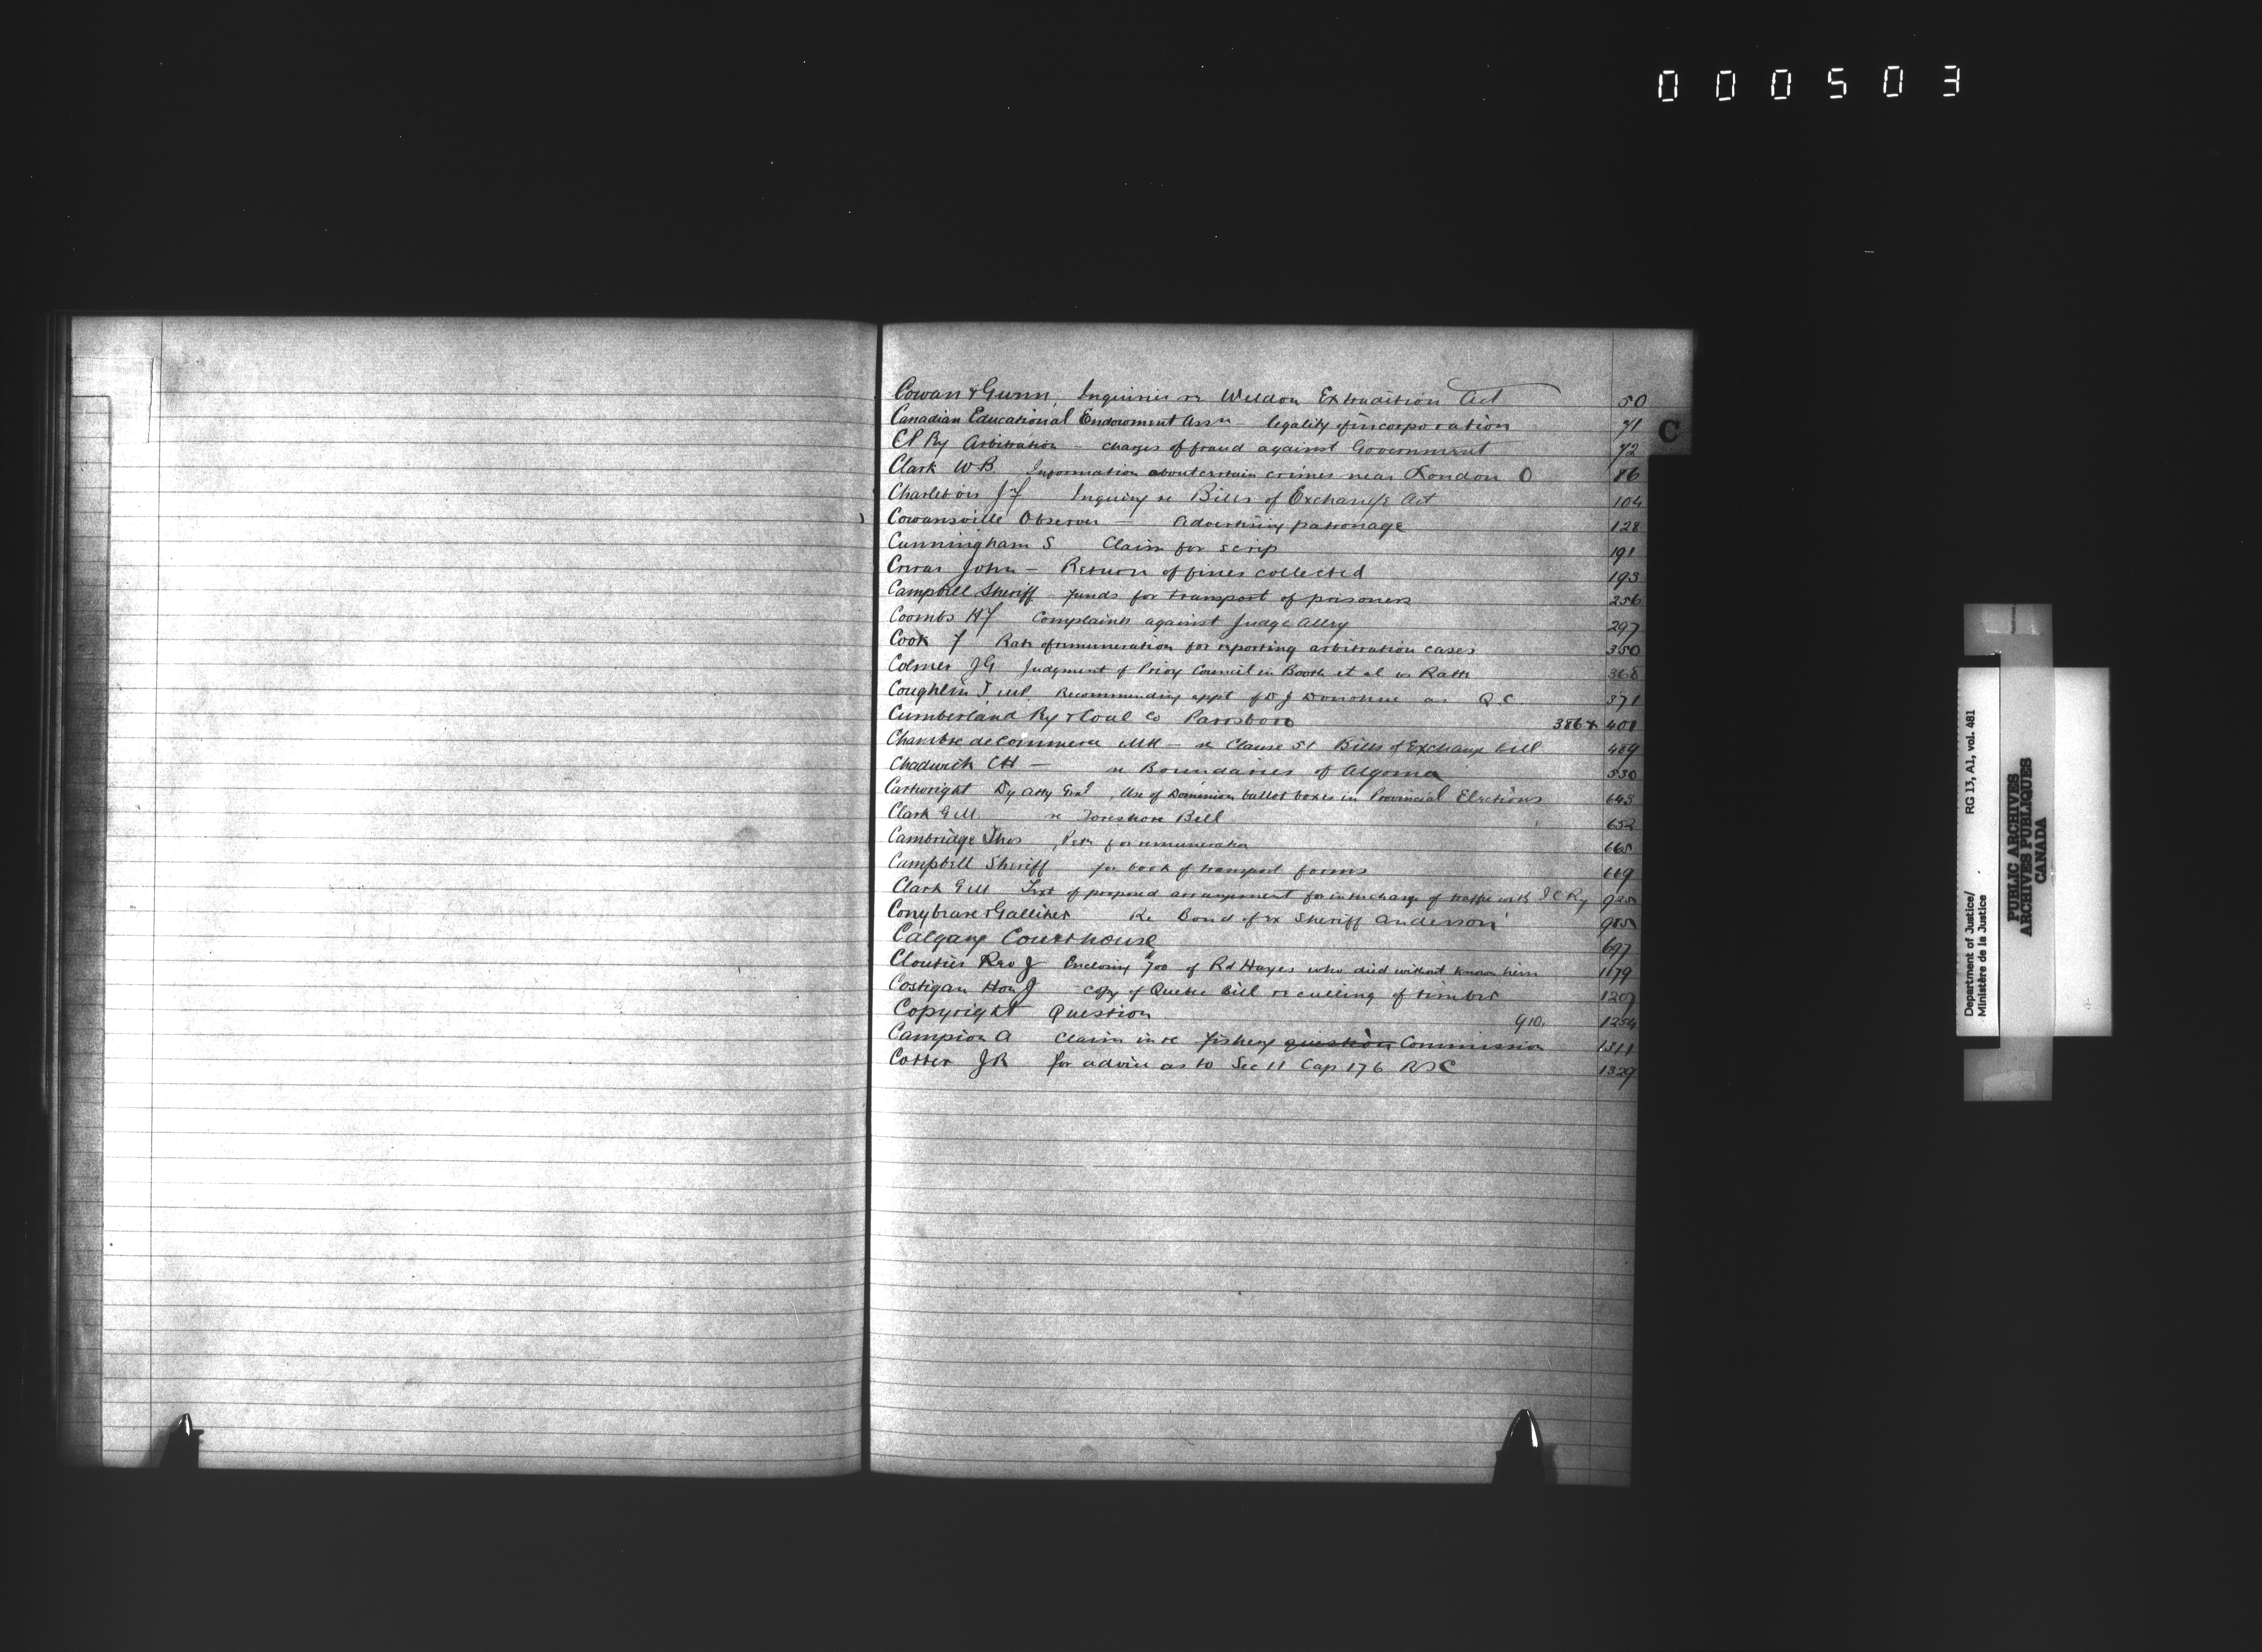 000503
Cowan & Gunn, Inquiries re Weldon Extradition Act 50
Canadian Educational Endowment Assn - legality of incorporation 71
C
CP Ry Arbitration - charges of fraud against Government 72
Clark W B Information about certain crimes near London O 86
Charlebois J F Inquiry re Bills of Exchange Act 104
Cowansville Observer - Advertising patronage 128
Cunningham S Claim for scrip 191
John - Return of fines collected 193
Campbell Sheriff - funds for transport of prisoners 256
Coombs H F Complaints against Judge 297
Cook F Rate of remuneration for reporting arbitration cases 350
Colmer J G Judgment of Privy Council in Booth et al vs Ratté 368
Coughlin T MP Recommending appt of D J Donohue as Q C 371
Cumberland Ry & Coal Co Parrsboro 386 & 401
Chambre de Commerce Mtl - re Clause 51 Bills of Exchange bill 489
Chadwick CH - re Boundaries of Algoma 530
Cartwright Dy Atty Genl, Use of Dominion ballot boxes in Provincial Elections 643
Clark G M re Foreshore Bill 652
Cambridge Thos, Petn for remuneration 665
Campbell Sheriff for book of transport forms 669
Clark G M Text of proposed arrangement for interchange of traffic with I C Ry 925
Conybeare & Galliher Re Bond of ex Sheriff Anderson 985
Calgary Courthouse 697
Cloutier Rev J Enclosing 700 of Rd Hayes who died without known heirs 1179
Costigan Hon J copy of Quebec Bill re culling of timber 1207
Copyright Question 910, 1254
Campion A claim in re fishery question Commission 1311
Cotter J R for advice as to Sec 11 Cap 176 RSC 1329
Department of Justice/
Ministère de la Justice
RG 13, A1, vol. 481
PUBLIC ARCHIVES
ARCHIVES PUBLIQUES
CANADA